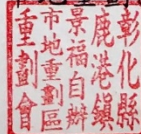 彰化縣
鹿港鎮
景福自辦
市地重劃區
重劃會